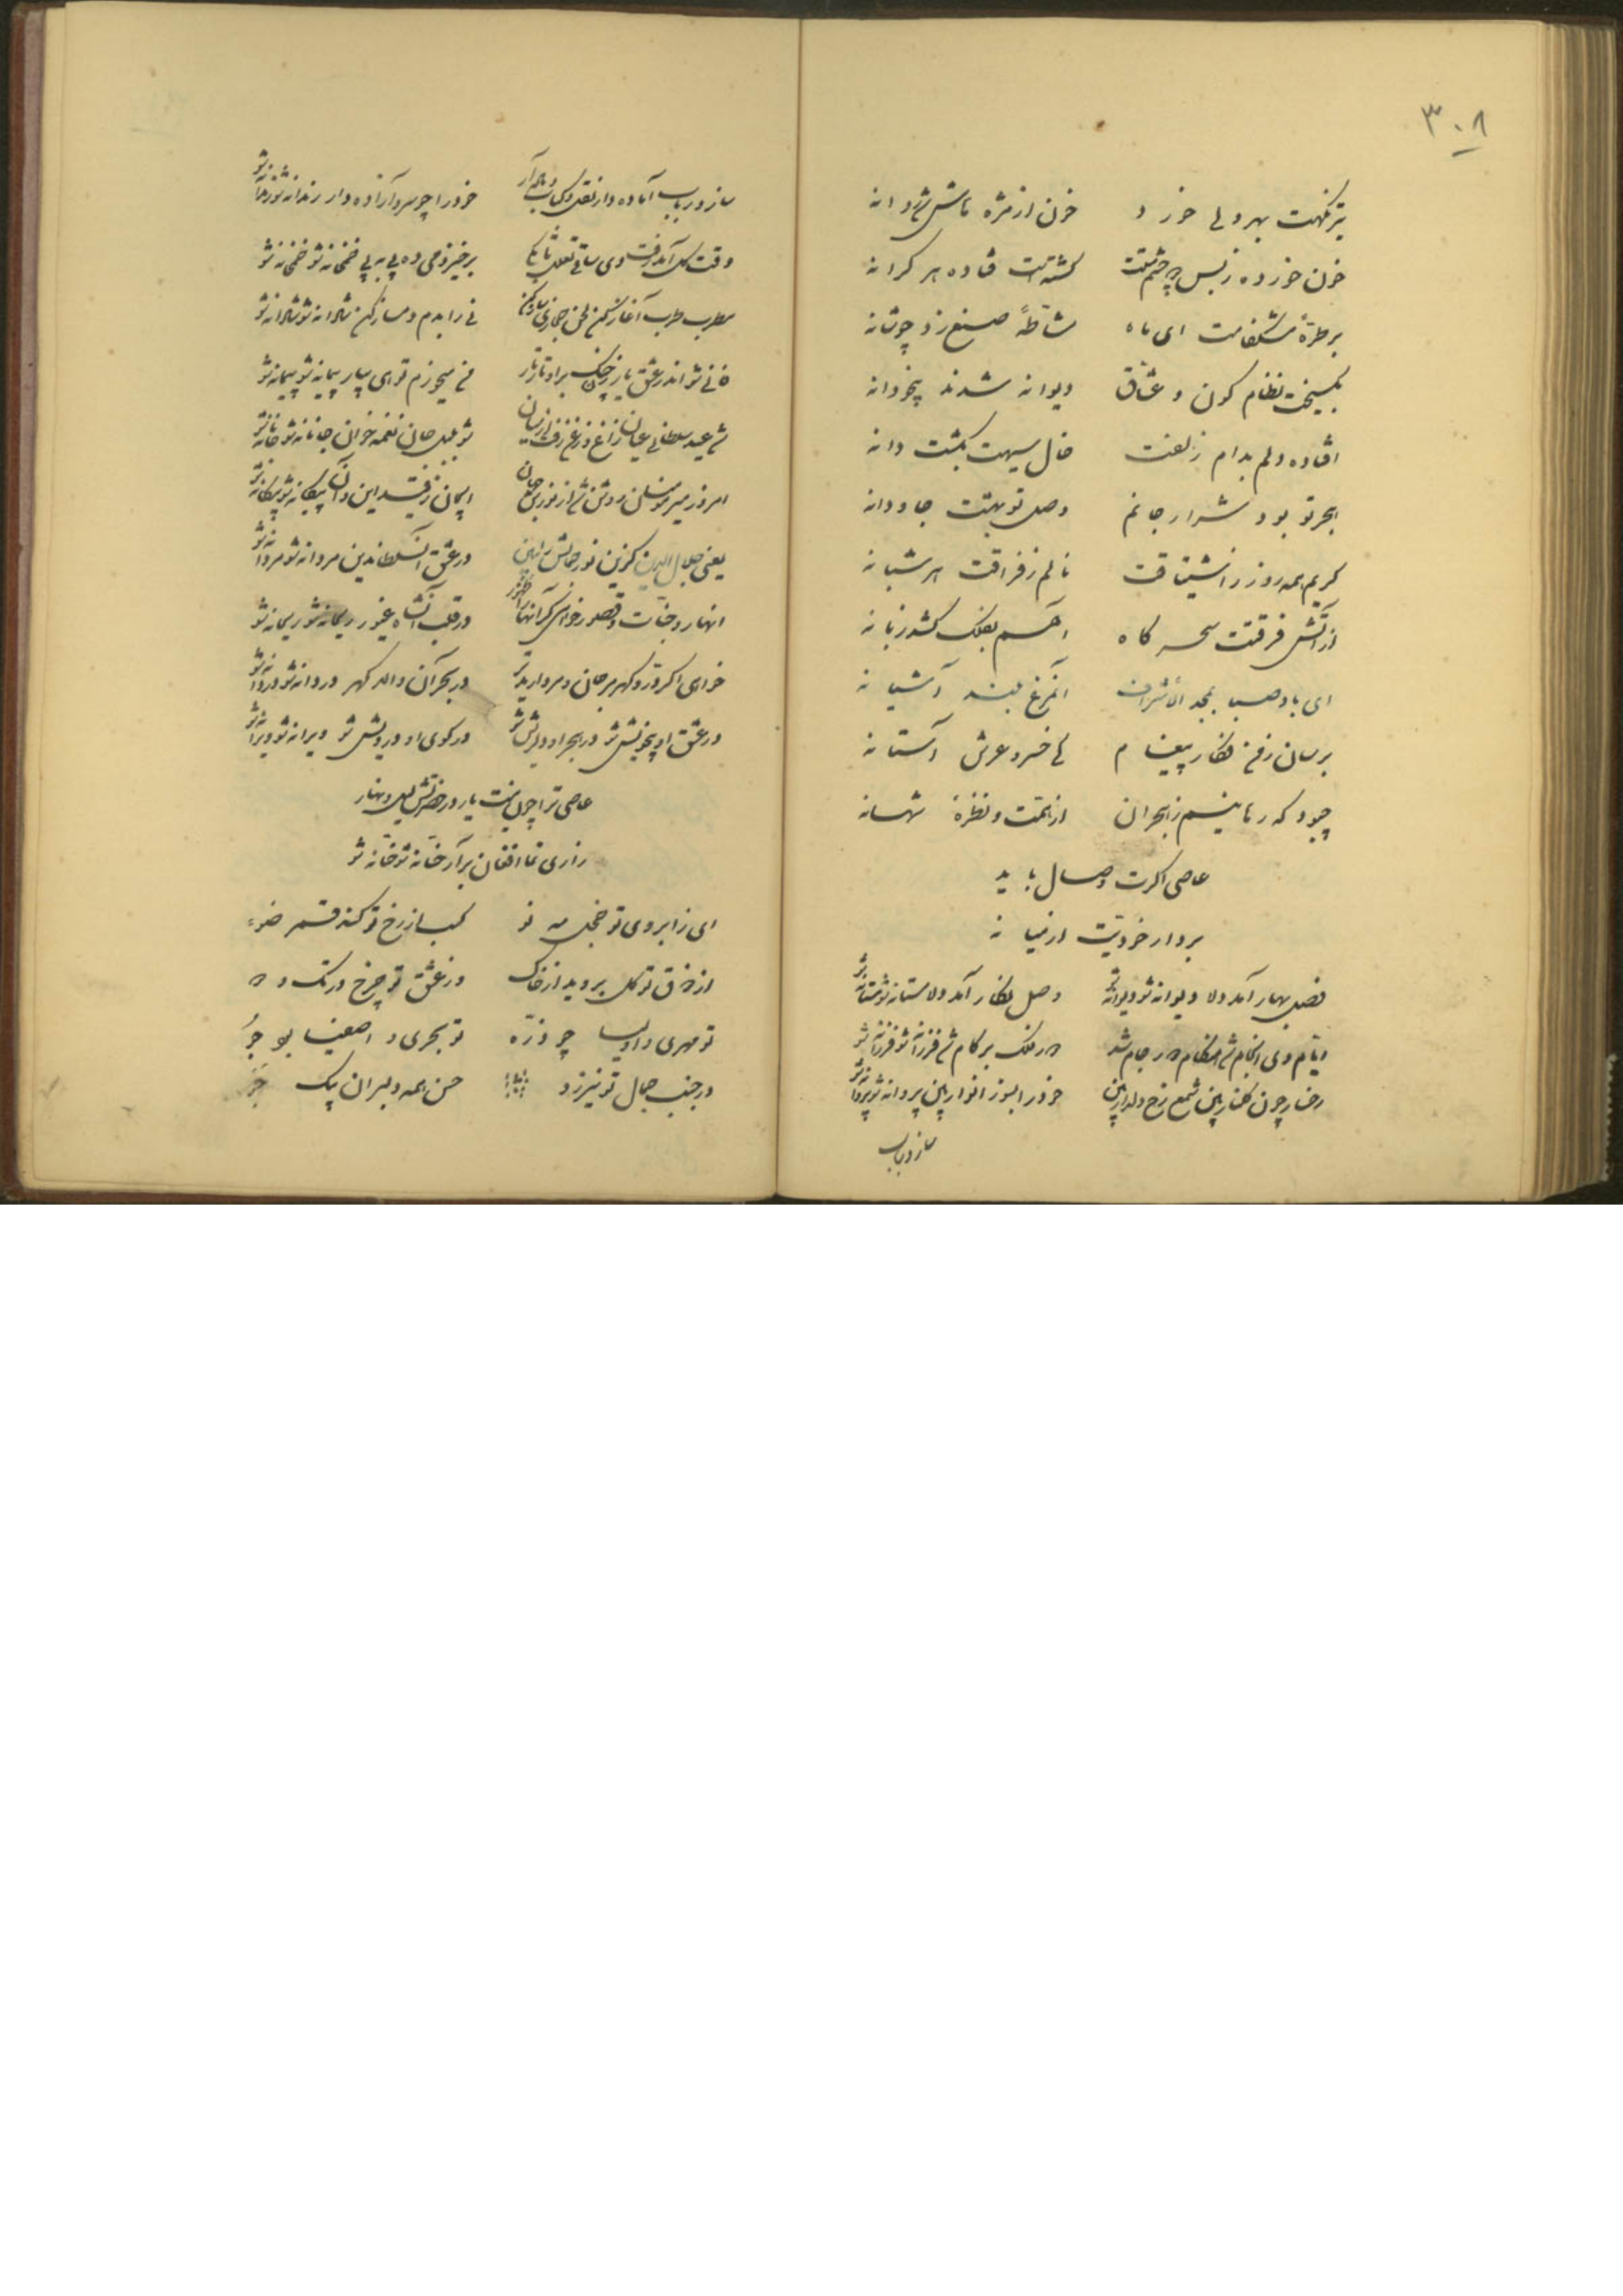 ۳۰۸
تیر نگهت بهر دلی خورد خون از مژه‌اش شد روانه
خون خورده ز بس چشم مستت کشته است فتاده هر کرانه
بر طرهٔ مشکفامت ای ماه مشاطهٔ صنع زد چو شانه
بگسیخت نظام کون و عشاق دیوانه شدند بیخودانه
افتاده دلم بدام زلفت خال سیهت بگشت دانه
هجر تو بود شرار جانم وصل تو بهشت جاودانه
گریم همه روز ز اشتیاقت نالم ز فراقت هر شبانه
از آتش فرقتت سحرگاه آهم بفلک کشد زبانه
ای باد صبا بمجد الأشراف آنمرغ بلند آشیانه
برسان ز من فکار پیغام کای خسرو عرش آستانه
چبود که رهانیم ز هجران از همت و نظرهٔ شهانه
عاصی اگرت وصال باید
بردار خودیت از میانه
فصل بهار آمد دلا دیوانه شو دیوانه شو وصل نگار آمد دلا مستانه شو مستانه شو
ایام دی انجام شد هنگام می در جام شد دور فلک بر کام شد فرزانه شو فرزانه شو
رخسار چون گلنار بین شمع رخ دلدار بین خود را بسوز انوار بین پروانه شو پروانه شو
ساز و رباب
ساز و رباب آماده دار نقل و کباب و می آر خود را چو سرو آزاده دار رندانه شو رندانه شو
وقت گل آمد رفت دی ساقی تعلل تا بکی برخیز و می ده پی به پی خمخانه شو خمخانه شو
مطرب طرب آغاز کن لحن حجازی ساز کن نی را بدم دمساز کن شاهانه شو شاهانه شو
فانی شو اندر عشق یار چنگ بر او تار تار می میخورم تو ای پیمانه شو پیمانه شو
شد عید سلطانی عیان زاغ و زغن رفت از میان شو بلبل جان نغمه خوان جانانه شو جانانه شو
امروز میر مؤمنان روشن شد از نورش جهان ایمان این و آن بیگانه شو بیگانه شو
یعنی جلال الدین کزین نور جمالش به ببین در عشق آن سلطان دین مردانه شو مردانه شو
انهار و جنات و قصور خواهی گر آنها را ظهور در قلب آنشاه غیور ریحانه شو ریحانه شو
خواهی اگر در و گهر مرجان و مروارید تر در بحر آن والا گهر دردانه شو دردانه شو
در عشق او بیخویش شو در هجر او دلریش شو در کوی او درویش شو ویرانه شو ویرانه شو
عاصی ترا چون نیست یار در حضرتش لیل و نهار
زاری نما افغان برآر حنانه شو حنانه شو
ای ز ابروی تو خجل مه نو کسب از رخ تو کند قمر ضوء
از خاک تو گل بروید از خاک در عشق تو چرخ در تک و دو
تو مهری و اولیا چو ذره تو بحری و اصفیا چو جو
در جنب جمال تو نیرزد حسن همه دلبران بیک جو